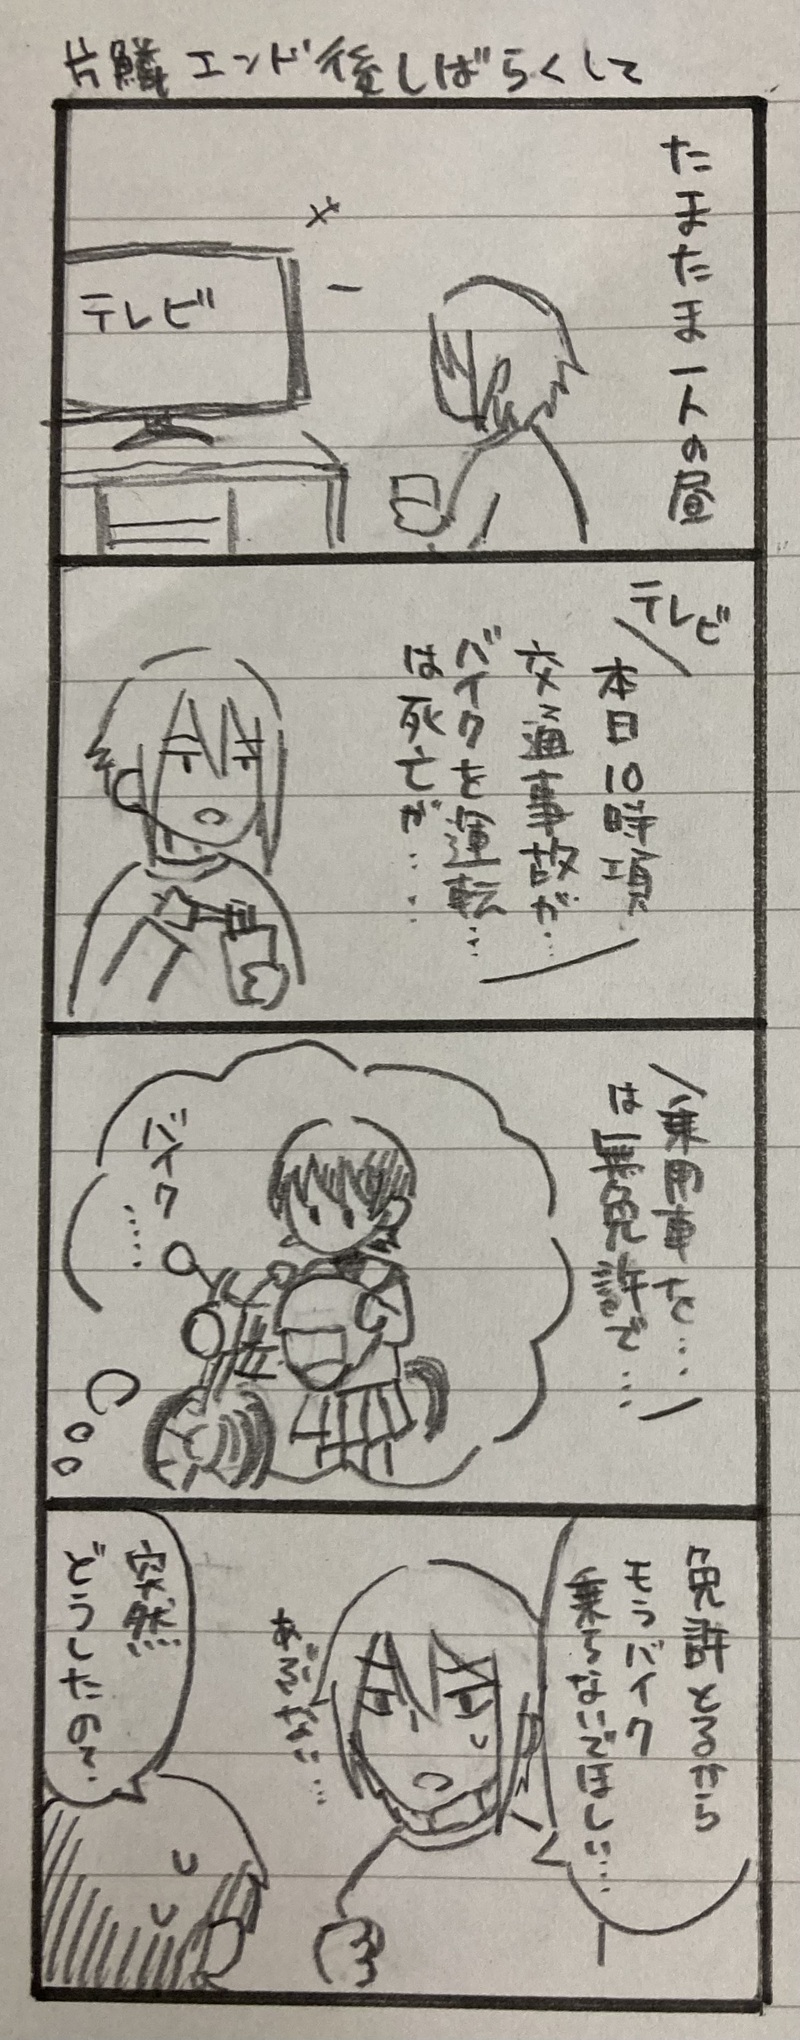 片鱗エンド後しばらくして
たまたま一人の昼
テレビ
テレビ
本日10時頃
交通事故が…
バイクを運転…
は死亡が……
乗用車を…
は無免許で…
バイク
……
免許とるから
もうバイク
乗らないでほしい…
あぶない…
突然
どうしたの?